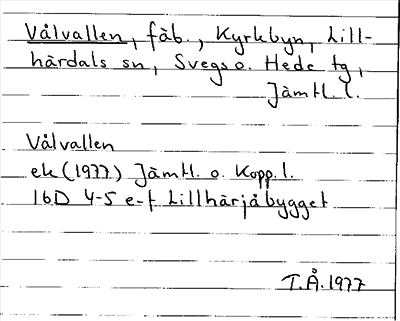 Vålvallen, fäb., Kyrkbyn, Lill-
härdals sn, Svegs o. Hede tg,
Jämtl. l.
Vålvallen
ek (1977) Jämtl. o. Kopp. l.
16D 4-5 e-f Lillhärjåbygget
T.Å. 1977